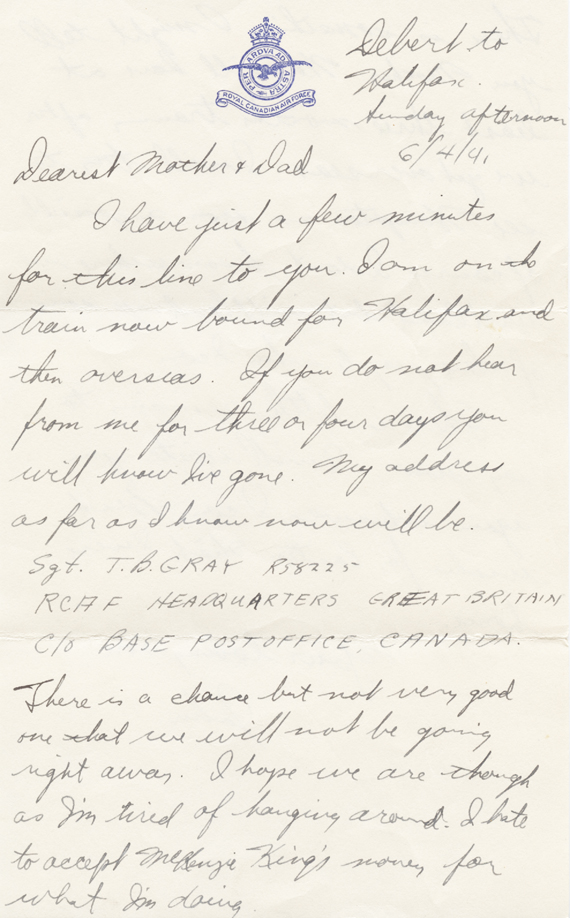 PER ARDVA AD ASTRA
ROYAL CANADIAN AIR FORCE
Debert to
Halifax.
Sunday afternoon
6/4/41
Dearest Mother & Dad
I have just a few minutes
for this line to you. I am on the
train now bound for Halifax and
then overseas. If you do not hear
from me for three or four days you
will know I've gone. My address
as far as I know now will be.
Sgt. T.B. GRAY R58225
RCAF HEADQUARTERS GREAT BRITAIN
C/o BASE POSTOFFICE, CANADA.
There is a chance but not very good
one that we will not be going
right away. I hope we are though
as I'm tired of hanging around. I hate
to accept McKenzie King's money for
what I'm doing.